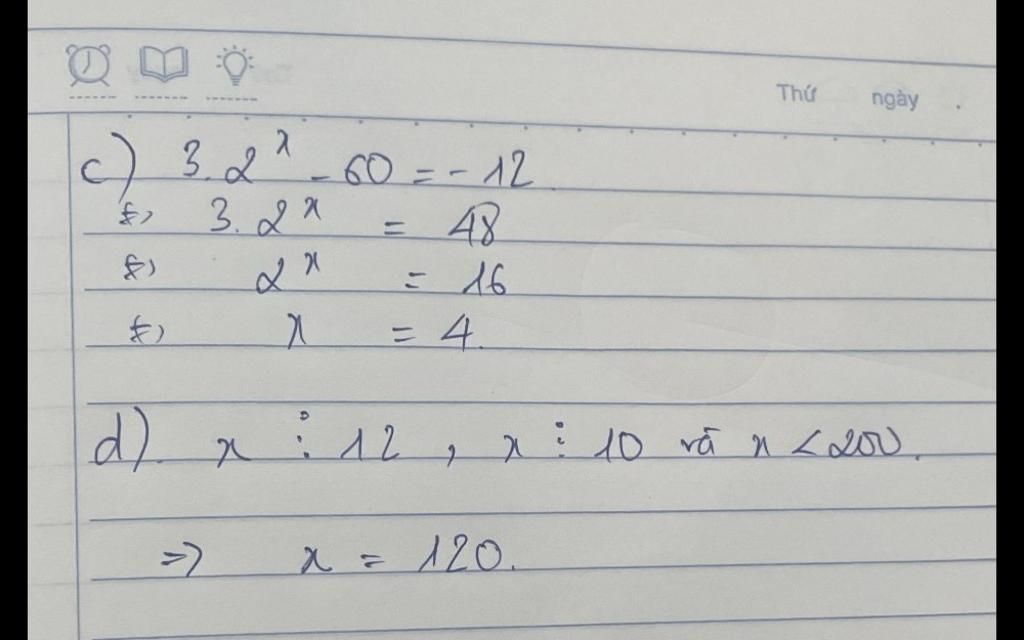 Thứ ngày .
c) 3.2^x - 60 = -12
⇔ 3.2^x = 48
⇔ 2^x = 16
⇔ x = 4.
d). x ⋮ 12 , x ⋮ 10 và x < 200.
=> x = 120.